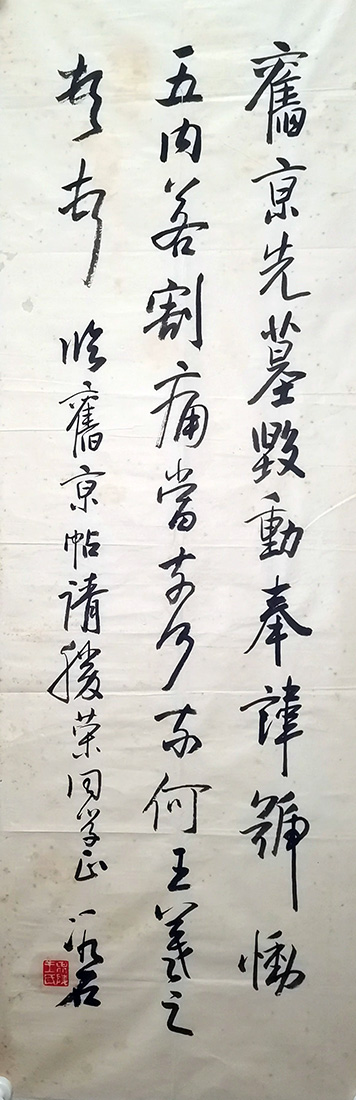 舊京先墓毀動奉諱號慟
五内若割痛當奈何奈何王羲之
頓首 臨舊京帖請勝荣同学正